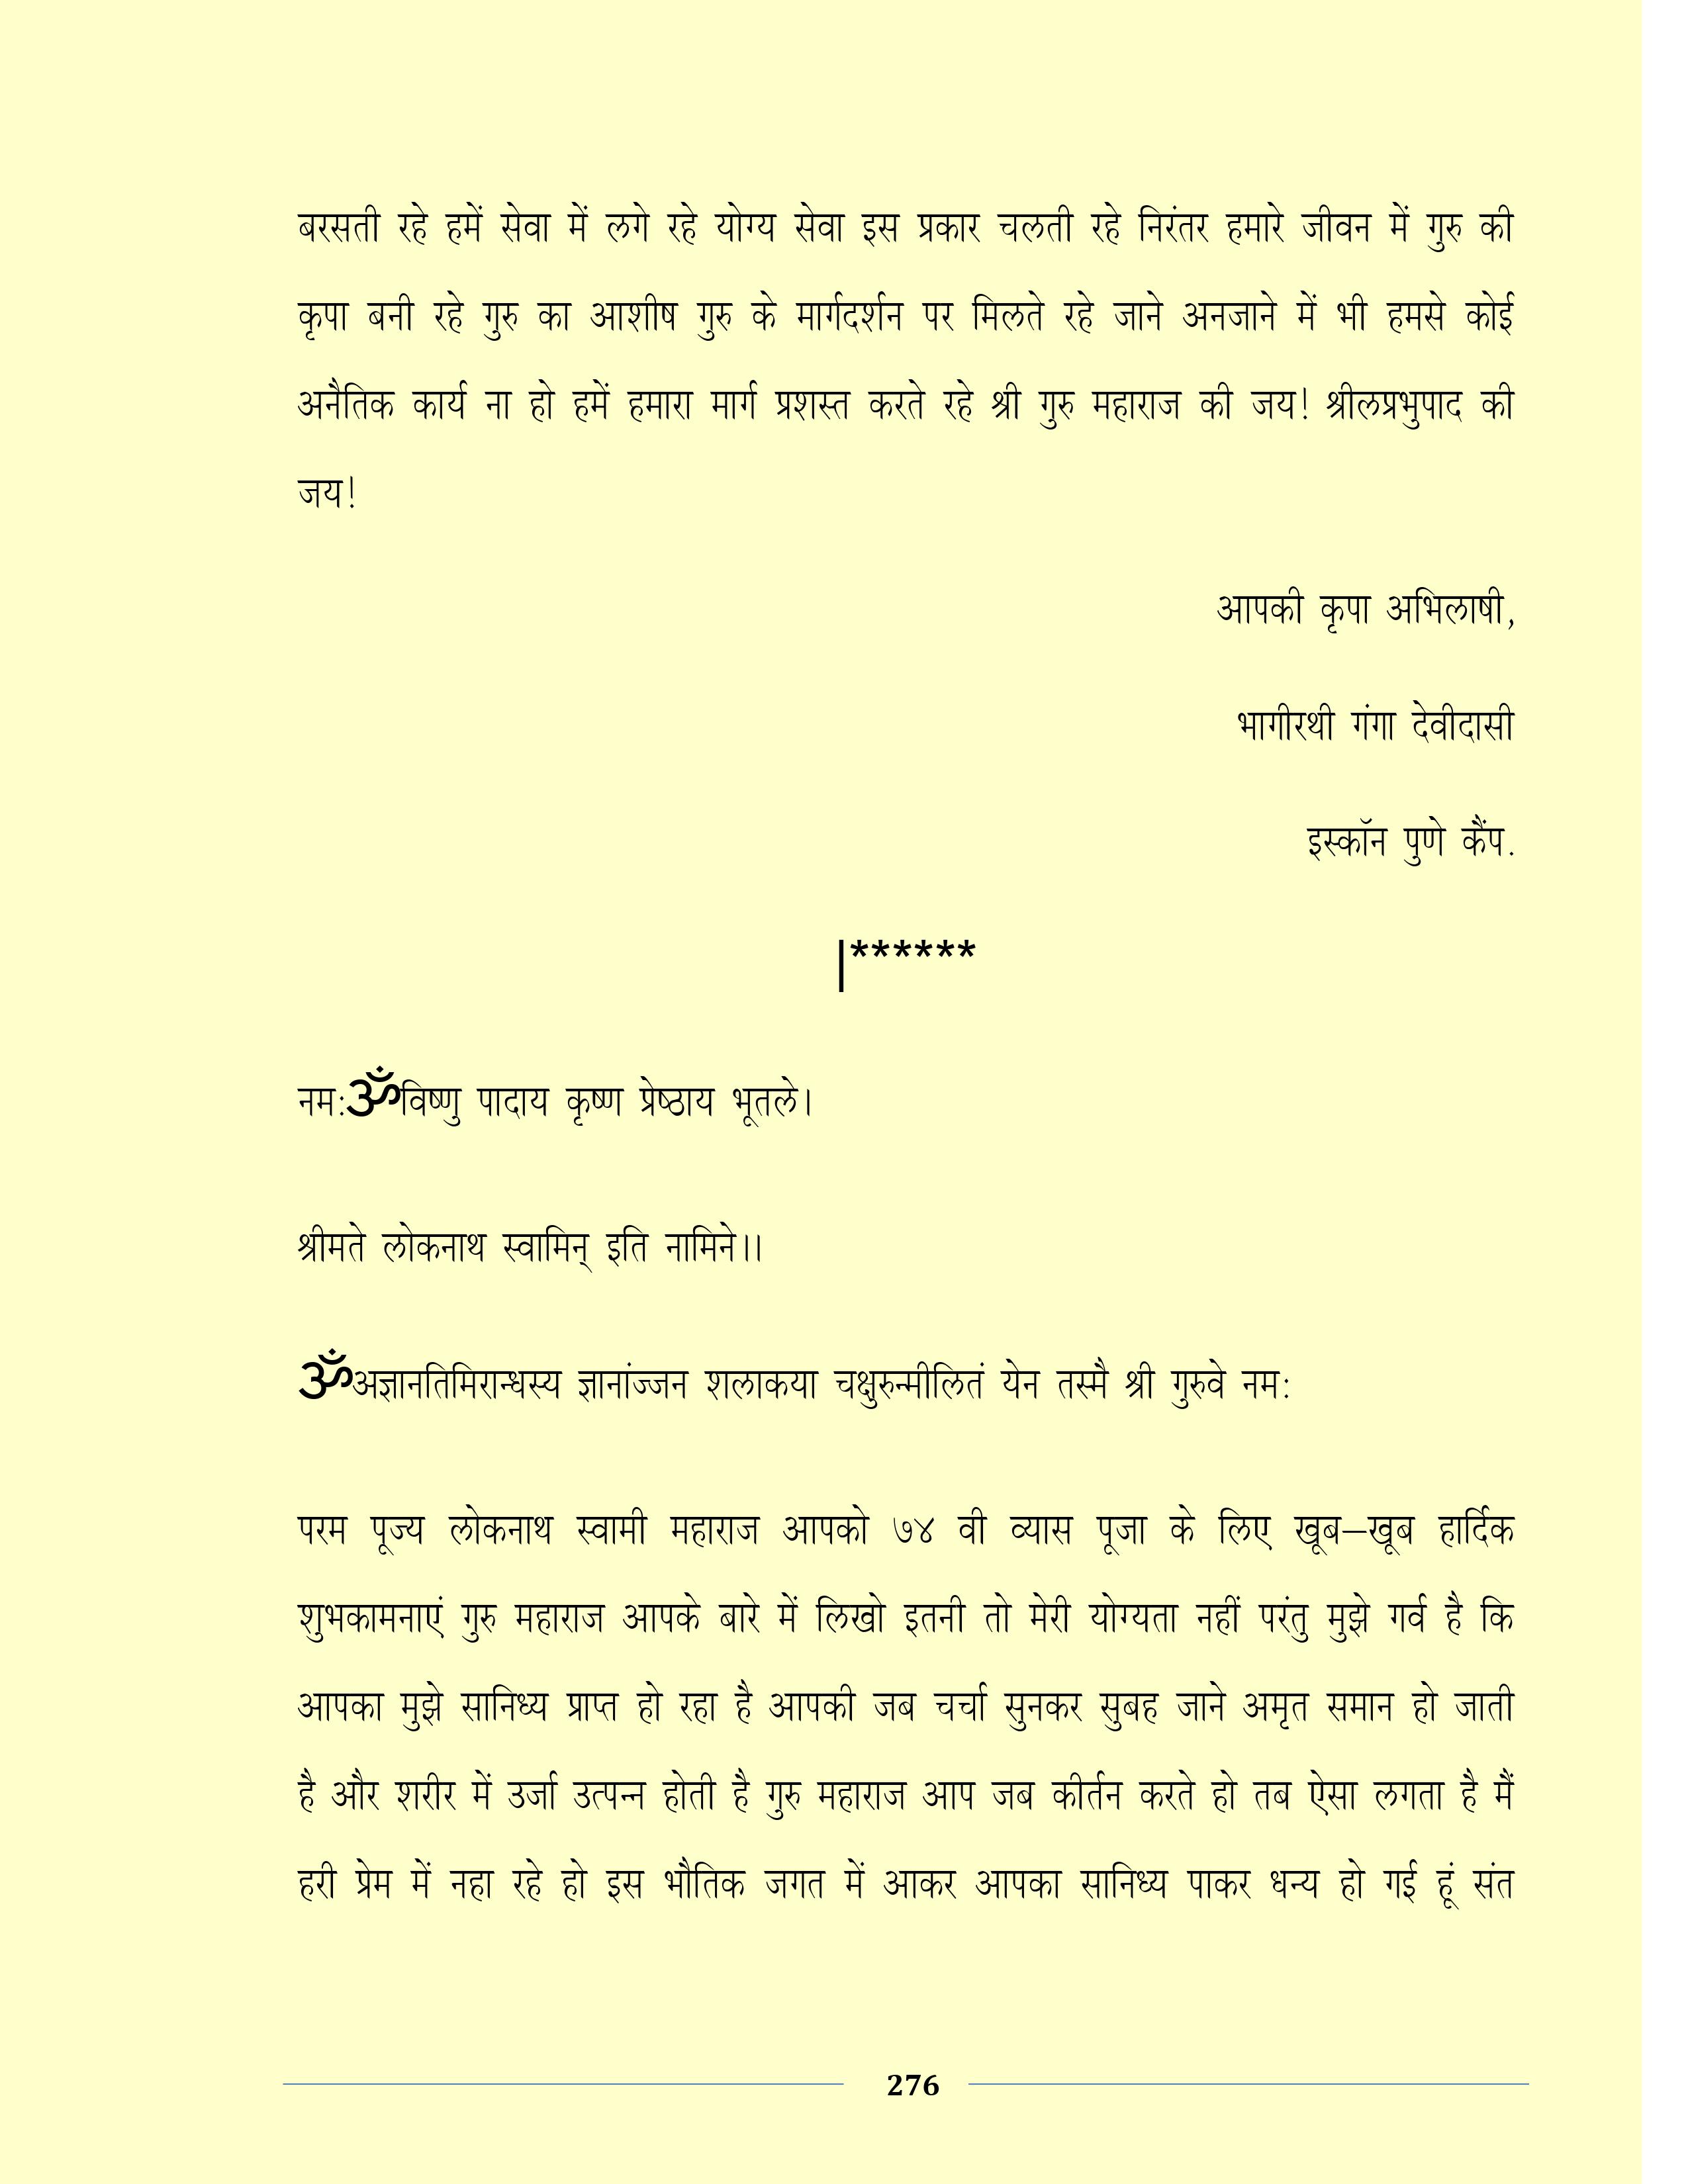 बरसती रहे हमें सेवा में लगे रहे योग्य सेवा इस प्रकार चलती रहे निरंतर हमारे जीवन में गुरु की
कृपा बनी रहे गुरु का आशीष गुरु के मार्गदर्शन पर मिलते रहे जाने अनजाने में भी हमसे कोई
अनैतिक कार्य ना हो हमें हमारा मार्ग प्रशस्त करते रहे श्री गुरु महाराज की जय! श्रीलप्रभुपाद की
जय!
आपकी कृपा अभिलाषी,
भागीरथी गंगा देवीदासी
इस्कॉन पुणे कैंप.
|******
नमः ॐविष्णु पादाय कृष्ण प्रेष्ठाय भूतले।
श्रीमते लोकनाथ स्वामिन् इति नामिने।।
ॐअज्ञानतिमिरान्धस्य ज्ञानांज्जन शलाकया चक्षुरुन्मीलितं येन तस्मै श्री गुरुवे नमः
परम पूज्य लोकनाथ स्वामी महाराज आपको ७४ वी व्यास पूजा के लिए खूब–खूब हार्दिक
शुभकामनाएं गुरु महाराज आपके बारे में लिखो इतनी तो मेरी योग्यता नहीं परंतु मुझे गर्व है कि
आपका मुझे सानिध्य प्राप्त हो रहा है आपकी जब चर्चा सुनकर सुबह जाने अमृत समान हो जाती
है और शरीर में उर्जा उत्पन्न होती है गुरु महाराज आप जब कीर्तन करते हो तब ऐसा लगता है मैं
हरी प्रेम में नहा रहे हो इस भौतिक जगत में आकर आपका सानिध्य पाकर धन्य हो गई हूं संत
276